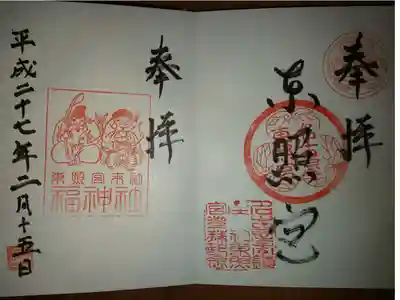 奉拝
東照宮
奉拝
東照宮末社
福神社
平成二十七年二月十五日